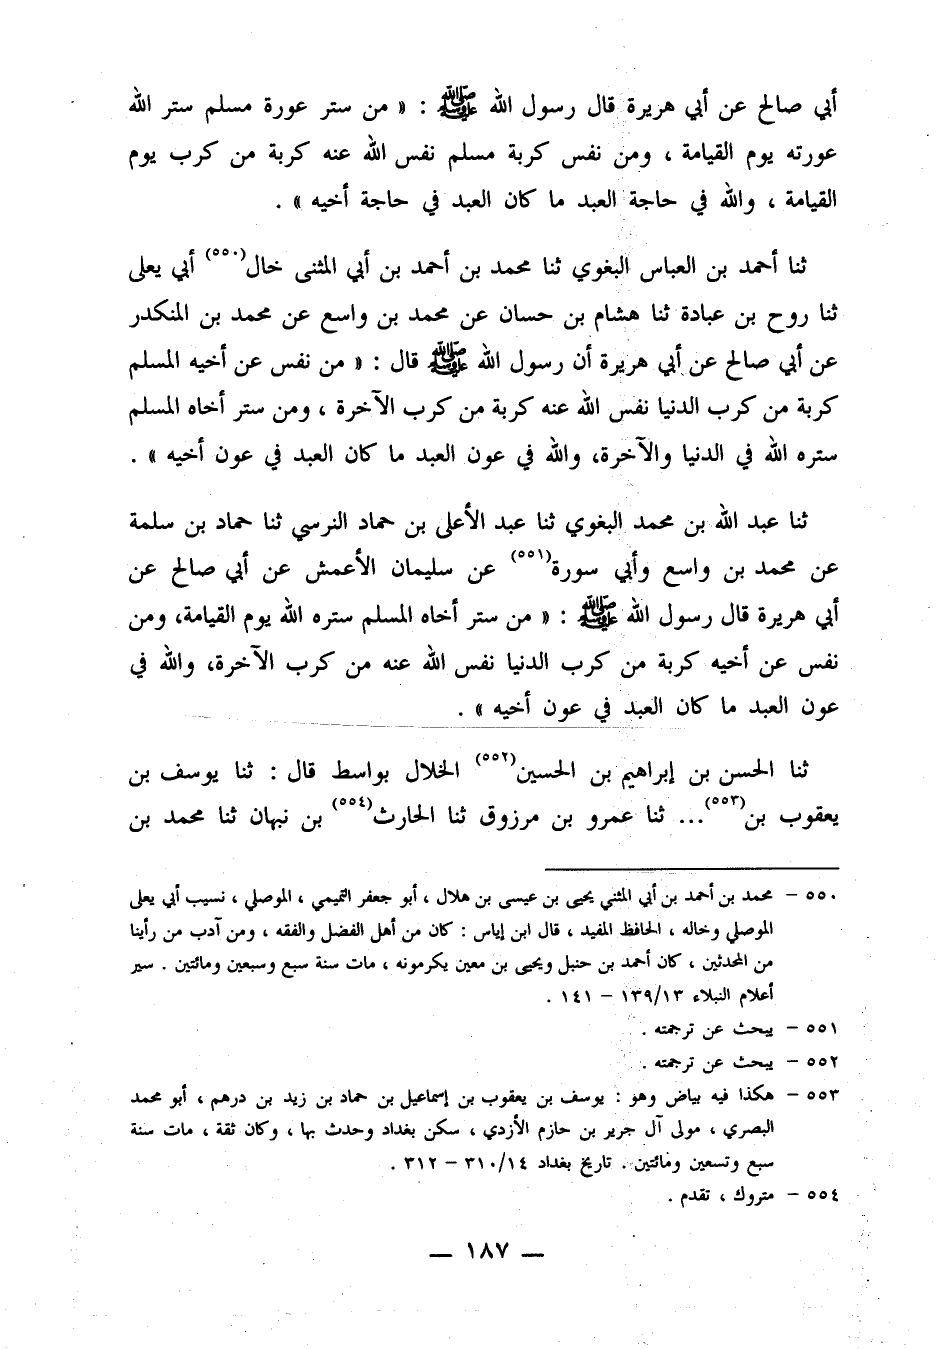 أبي صالح عن أبي هريرة قال رسول الله ﷺ : « من ستر عورة مسلم ستر الله
عورته يوم القيامة ، ومن نفس كربة مسلم نفس الله عنه كربة من كرب يوم
القيامة ، والله في حاجة العبد ما كان العبد في حاجة أخيه » .
ثنا أحمد بن العباس البغوي ثنا محمد بن أحمد بن أبي المثنى خال(٥٥٠) أبي يعلى
ثنا روح بن عبادة ثنا هشام بن حسان عن محمد بن واسع عن محمد بن المنكدر
عن أبي صالح عن أبي هريرة أن رسول الله ﷺ قال : « من نفس عن أخيه المسلم
كربة من كرب الدنيا نفس الله عنه كربة من كرب الآخرة ، ومن ستر أخاه المسلم
ستره الله في الدنيا والآخرة، والله في عون العبد ما كان العبد في عون أخيه » .
ثنا عبد الله بن محمد البغوي ثنا عبد الأعلى بن حماد النرسي ثنا حماد بن سلمة
عن محمد بن واسع وأبي سورة(٥٥١) عن سليمان الأعمش عن أبي صالح عن
أبي هريرة قال رسول الله ﷺ : « من ستر أخاه المسلم ستره الله يوم القيامة، ومن
نفس عن أخيه كربة من كرب الدنيا نفس الله عنه من كرب الآخرة، والله في
عون العبد ما كان العبد في عون أخيه » .
ثنا الحسن بن إبراهيم بن الحسين(٥٥٢) الخلال بواسط قال : ثنا يوسف بن
يعقوب بن(٥٥٣)... ثنا عمرو بن مرزوق ثنا الحارث(٥٥٤) بن نبهان ثنا محمد بن
٥٥٠ – محمد بن أحمد بن أبي المثني يحيى بن عيسى بن هلال ، أبو جعفر التميمي ، الموصلي ، نسيب أبي يعلى
الموصلي وخاله ، الحافظ المفيد ، قال ابن إياس : كان من أهل الفضل والفقه ، ومن آدب من رأينا
من المحدثين ، كان أحمد بن حنبل ويحيى بن معين يكرمونه ، مات سنة سبع وسبعين ومائتين . سير
أعلام النبلاء ١٣/‏١٣٩ – ١٤١ .
٥٥١ – يبحث عن ترجمته .
٥٥٢ – يبحث عن ترجمته .
٥٥٣ – هكذا فيه بياض وهو : يوسف بن يعقوب بن إسماعيل بن حماد بن زيد بن درهم ، أبو محمد
البصري ، مولى آل جرير بن حازم الأزدي ، سكن بغداد وحدث بها ، وكان ثقة ، مات سنة
سبع وتسعين ومائتين . تاريخ بغداد ١٤/‏٣١٠ – ٣١٢ .
٥٥٤ – متروك ، تقدم .
— ١٨٧ —